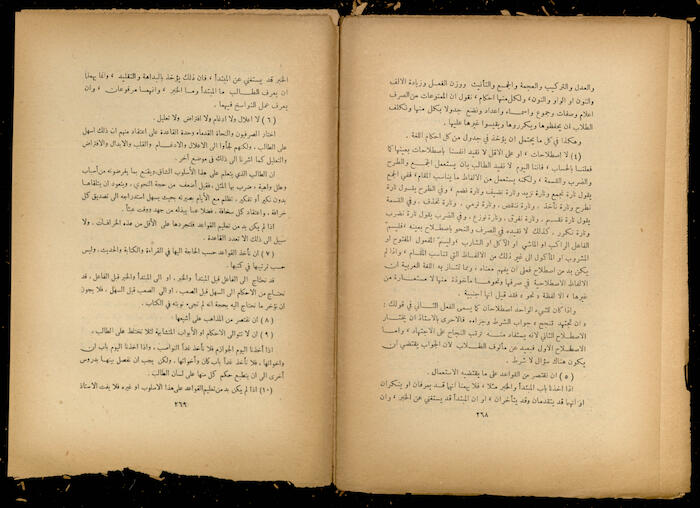 والعدل والتركيب والعجمة والجمع والتأنيث ووزن الفعل وزيادة الالف
والنون او الواو والنون، ولكل منها احكام، نقول ان الممنوعات من الصرف
اعلام وصفات وجموع واسماء واعداد ونضع جدولا بكل منها ونكلف
الطلاب ان يحفظوها ويكرروها ويقيسوا غيرها عليها.
وهكذا في كل ما يحتمل ان يؤخذ في جدول من كل احكام اللغة.
(٤) لا اصطلاحات، او على الاقل لا نقيد انفسنا باصطلاحات بعينها كما
فعلنا بالحساب، فاننا اليوم لا نقيد الطالب بأن يستعمل الجمع والطرح
والضرب والقسمة، ولكنه يستعمل من الالفاظ ما يناسب المقام، ففي الجمع
يقول تارة نجمع وتارة نزيد وتارة نضيف وتارة نضم، وفي الطرح يقول تارة
نطرح وتارة نأخذ. وتارة ننقص. وتارة نرمي. وتارة نحذف. وفي القسمة
يقول تارة نقسم. وتارة نفرق. وتارة نوزع. وفي الضرب يقول تارة نضرب
وتارة نكرر. كذلك لا نقيده في الصرف والنحو باصطلاح بعينه «فليسم»
الفاعل الراكب او الماشي او الآكل او الشارب «وليسم» المفعول المفتوح او
المشروب او المأكول الى غير ذلك من الالفاظ التي تناسب المقام، واذا لم
يكن بد من اصطلاح فعلى ان يفهم معناه، ربما تمتاز به اللغة العربية ان
الالفاظ الاصطلاحية في صرفها ونحوها مأخوذة منها لا مستعارة من
غيرها، الا لفظة « نحو » فقد قيل انها اجنبية.
واذا كان للشيء الواحد اصطلاحان كما يسمى الفعل الثاني في قولك:
« ان تجتهد تنجح » جواب الشرط وجزاءه. فالاحرى بالاستاذ ان يختار
الاصطلاح الثاني لانه يستفاد منه ترتب النجاح على الاجتهاد، واما
الاصطلاح الاول فبعيد عن مألوف الطلاب لان الجواب يقتضي ان
يكون هناك سؤال لا شرط.
(٥) ان نقتصر من القواعد على ما يقتضيه الاستعمال.
اذا اخذنا باب المبتدأ والخبر مثلا، فلا يهمنا انهما قد يعرفان او ينكران
او انهما قد يتقدمان وقد يتأخران، او ان المبتدأ قد يستغني عن الخبر، وان
٢٦٨
الخبر قد يستغني عن المبتدأ، فان ذلك يؤخذ بالبداهة والتقليد، وانما يهمنا
ان يعرف الطالب ما المبتدأ وما الخبر، وانهما مرفوعان، وان
يعرف عمل النواسخ فيهما.
(٦) لا اعلال ولا ادغام ولا افتراض ولا تعليل.
اختار الصرفيون والنحاة القدماء وحدة القاعدة على اعتقاد منهم ان ذلك اسهل
على الطالب. ولكنهم لجأوا الى الاعلال والادغام والقلب والابدال والافتراض
والتعليل كما اشرنا الى ذلك في موضع آخر.
ان الطالب الذي يتعلم على هذا الأسلوب الشاق ويقنع بما يفرضونه من أسباب
وعلل واهية. ضرب بها المثل، فقيل أضعف من حجة النحوي. ويتعود ان يتلقاها
بدون نكير أو تفكير. تظلم مع الأيام بصيرته بحيث يسهل استدراجه الى تصديق كل
خرافة. واعتقاد كل سخافة. فضلا عما يبذله من جهد ووقت عبثا.
اذا لم يكن بد من تعليم القواعد فلنجردها على الأقل من هذه الخرافات. ولا
سبيل الى ذلك الا تعدد القاعدة.
(٧) ان نأخذ القواعد حسب الحاجة اليها في القراءة والكتابة والحديث. وليس
حسب ترتيبها في كتبها.
قد نحتاج الى الفاعل قبل المبتدأ والخبر. او الى المبتدأ والخبر قبل الفاعل. قد
نحتاج من الأحكام الى السهل قبل الصعب. او الى الصعب قبل السهل. فلا يجوز
ان نؤخر ما نحتاج اليه بحجة انه لم تجىء نوبته في الكتاب.
(٨) ان نقتصر من المذاهب على أشيعها.
(٩) ان لا تتوالى الاحكام او الأبواب المتشابهة لئلا تختلط على الطالب.
اذا أخذنا اليوم الجوازم فلا نأخذ غداً النواصب. واذا اخذنا اليوم باب ان
واخواتها. فلا نأخذ غداً باب كان وأخواتها. ولكن يجب ان نفصل بينها بدروس
أخرى الى ان ينطبع حكم كل منها على لسان الطالب.
(١٠) اذا لم يكن بد من تعليم القواعد على هذا الاسلوب او غيره فلا يفت الاستاذ
٢٦٩